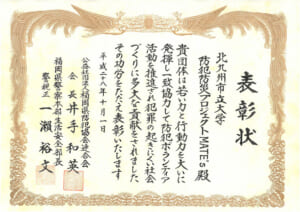 表彰状
北九州市立大学
防犯防災プロジェクトMATEs殿
貴団体は若い力と行動力を大いに
発揮し一致協力して防犯ボランティア
活動を推進され犯罪の起きにくい社会
づくりに多大な貢献をされました
その功労をたたえ表彰いたします
平成二八年十月一日
公益社団法人福岡県防犯協会連合会
会長 井手和英
福岡県警察本部生活安全部長
警視正 一瀬裕文